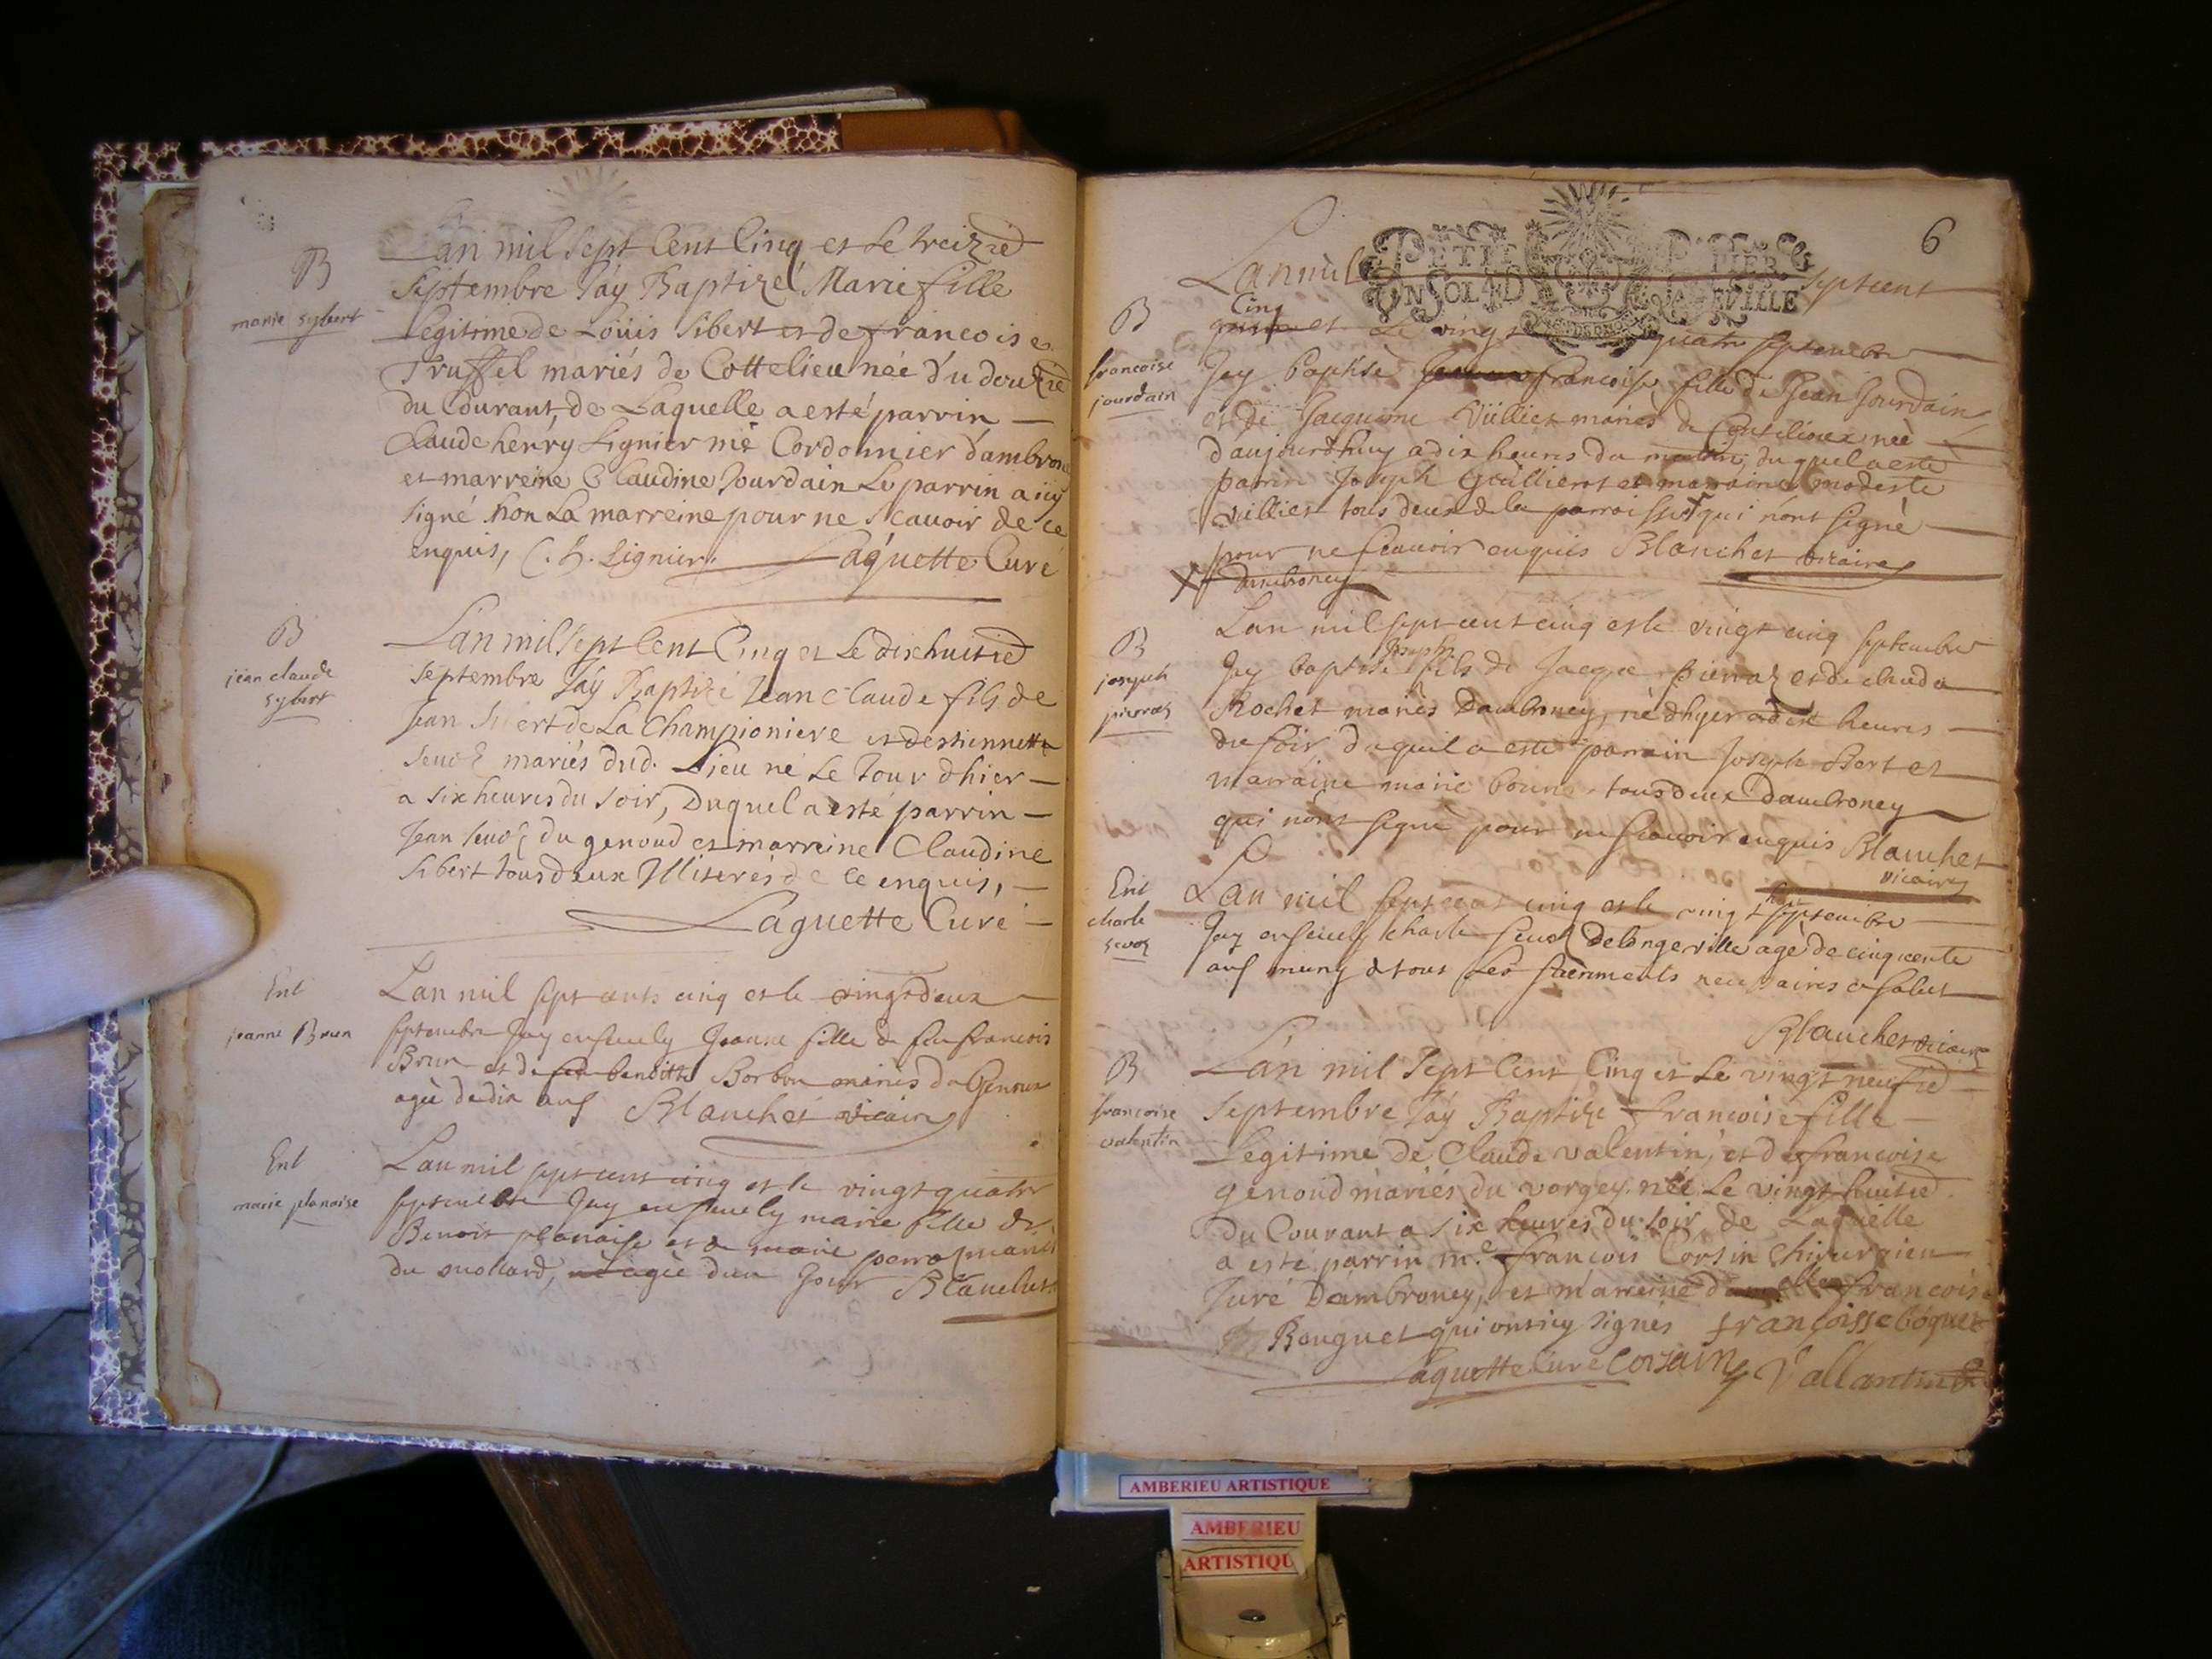 B
marie sybert
Lan mil Sept Cent Cinq et Le treizie
Septembre Jáy Baptizé Marie fille
Legitime de Loüis Sibert et de francoise
Truffel mariés de Cottelieu née du douzie
du Courant, de Laquelle a esté parrin
Claude henry Lignier me Cordonnier d'ambronay
et marreine Claudine Jourdain Le parrin a icy
signé non La marreine pour ne Scavoir de ce
enquis, C. h. Lignier. Laguette Curé
B
jean claude
sybert
Lan mil Sept Cent Cinq et Le dixhuitie
Septembre Jáy Baptizé Jean Claude fils de
Jean Sibert de La Championiere et destiennette
mariés dud. Lieu né Le Jour dhier
a six heures du soir, Duquel a esté parrin
Jean du genoud et marreine Claudine
Sibert tous deux Illiterés de ce enquis,
Laguette Curé
Ent
jeanne Brun
Lan mil sept cents cinq et le vingt deux
septembre Jay ensevely Jeanne fille de feu francois
Brun et de benoitte Borbon mariés du Genoux
agée de dix ans Blanchet vicaire
Ent
marie planaise
Lan mil sept cent cinq et le vingt quatre
septembre Jay ensevely marie fille de
Benoit planaise et de marie mariés
du mollard, agée dun Jour Blanchet
6
PETIT PAPIER
UN SOL 4 D LA FEUILLE
Lan mil sept cent
Cinq
et Le vingt quatre septembre
B
francoise
jourdain
Jay baptisé francoise fille de Jean Jourdain
et de Jacqueme Vulliet mariés de née
d'aujourdhuy a dix heures du matin, du quel a esté
parrin Joseph et marraine modeste
vulliet tous deux de la parroisse x qui nont signé
pour ne scauoir enquis Blanchet vicaire
x dambroney
B
joseph
pierraz
Lan mil sept cent cinq et le vingt cinq septembre
Joseph
Jay baptisé fils de Jacque pierraz et de clauda
Rochet mariés Dambroney, né dhyer a dix heures
du soir duquel a esté parrain Joseph et
marraine marie tous deux Dambroney
qui nont signé pour ne scauoir enquis Blanchet
vicaire
Ent
charle
sevoz
Lan mil sept cent cinq et le vingt sept septembre
Jay ensevely charle sevoz De longeville agé de cinquante
ans muny de tous Les sacrements necessaires a salut
Blanchet vicaire
B
francoise
valentin
Lan mil Sept Cent Cinq et Le vingt neufie
Septembre Jáy Baptizé francoise fille
Legitime de Claude valentin, et de francoise
genoud mariés du vorgey née Le vingt huitie
du Courant a six heures du soir de Laquelle
a esté parrin me. francois Corsin Chirurgien
Juré Dámbroney, et marreine francoise
Bouguet qui ont icy signés françoisse bóguet
Laguette Curé corsain Vallantin
AMBERIEU ARTISTIQUE
AMBERIEU
ARTISTIQU